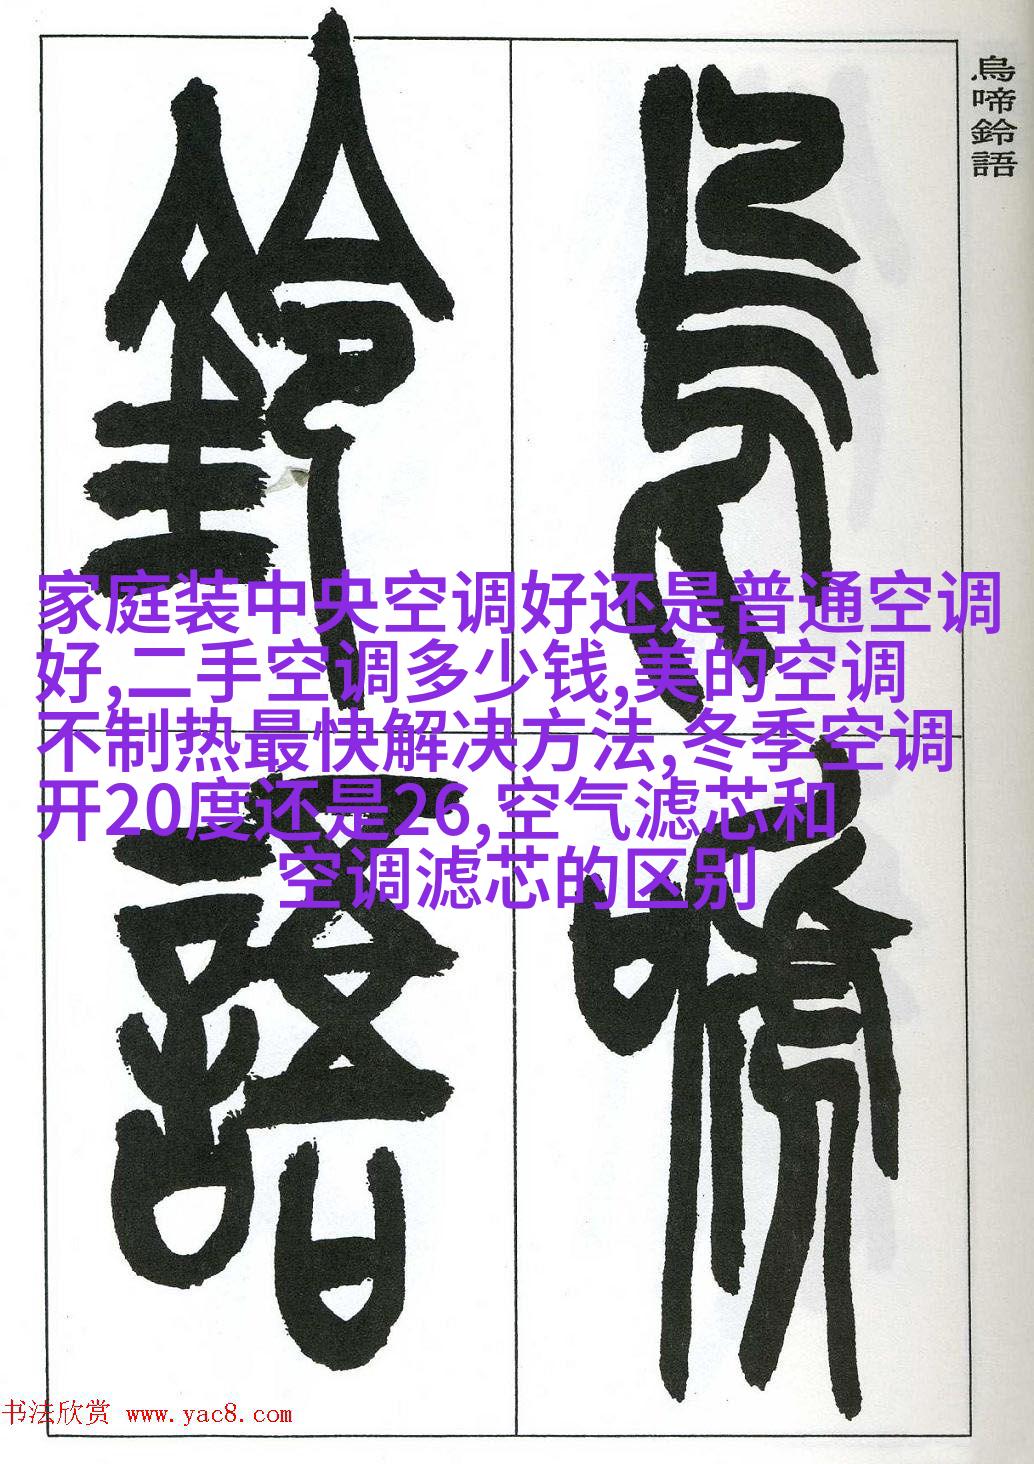 烏啼鈴語
家庭装中央空调好还是普通空调
好,二手空调多少钱,美的空调
不制热最快解决方法,冬季空调
开20度还是26,空气滤芯和
空调滤芯的区别
烏啼
鈴語
书法欣赏 www.yac8.com